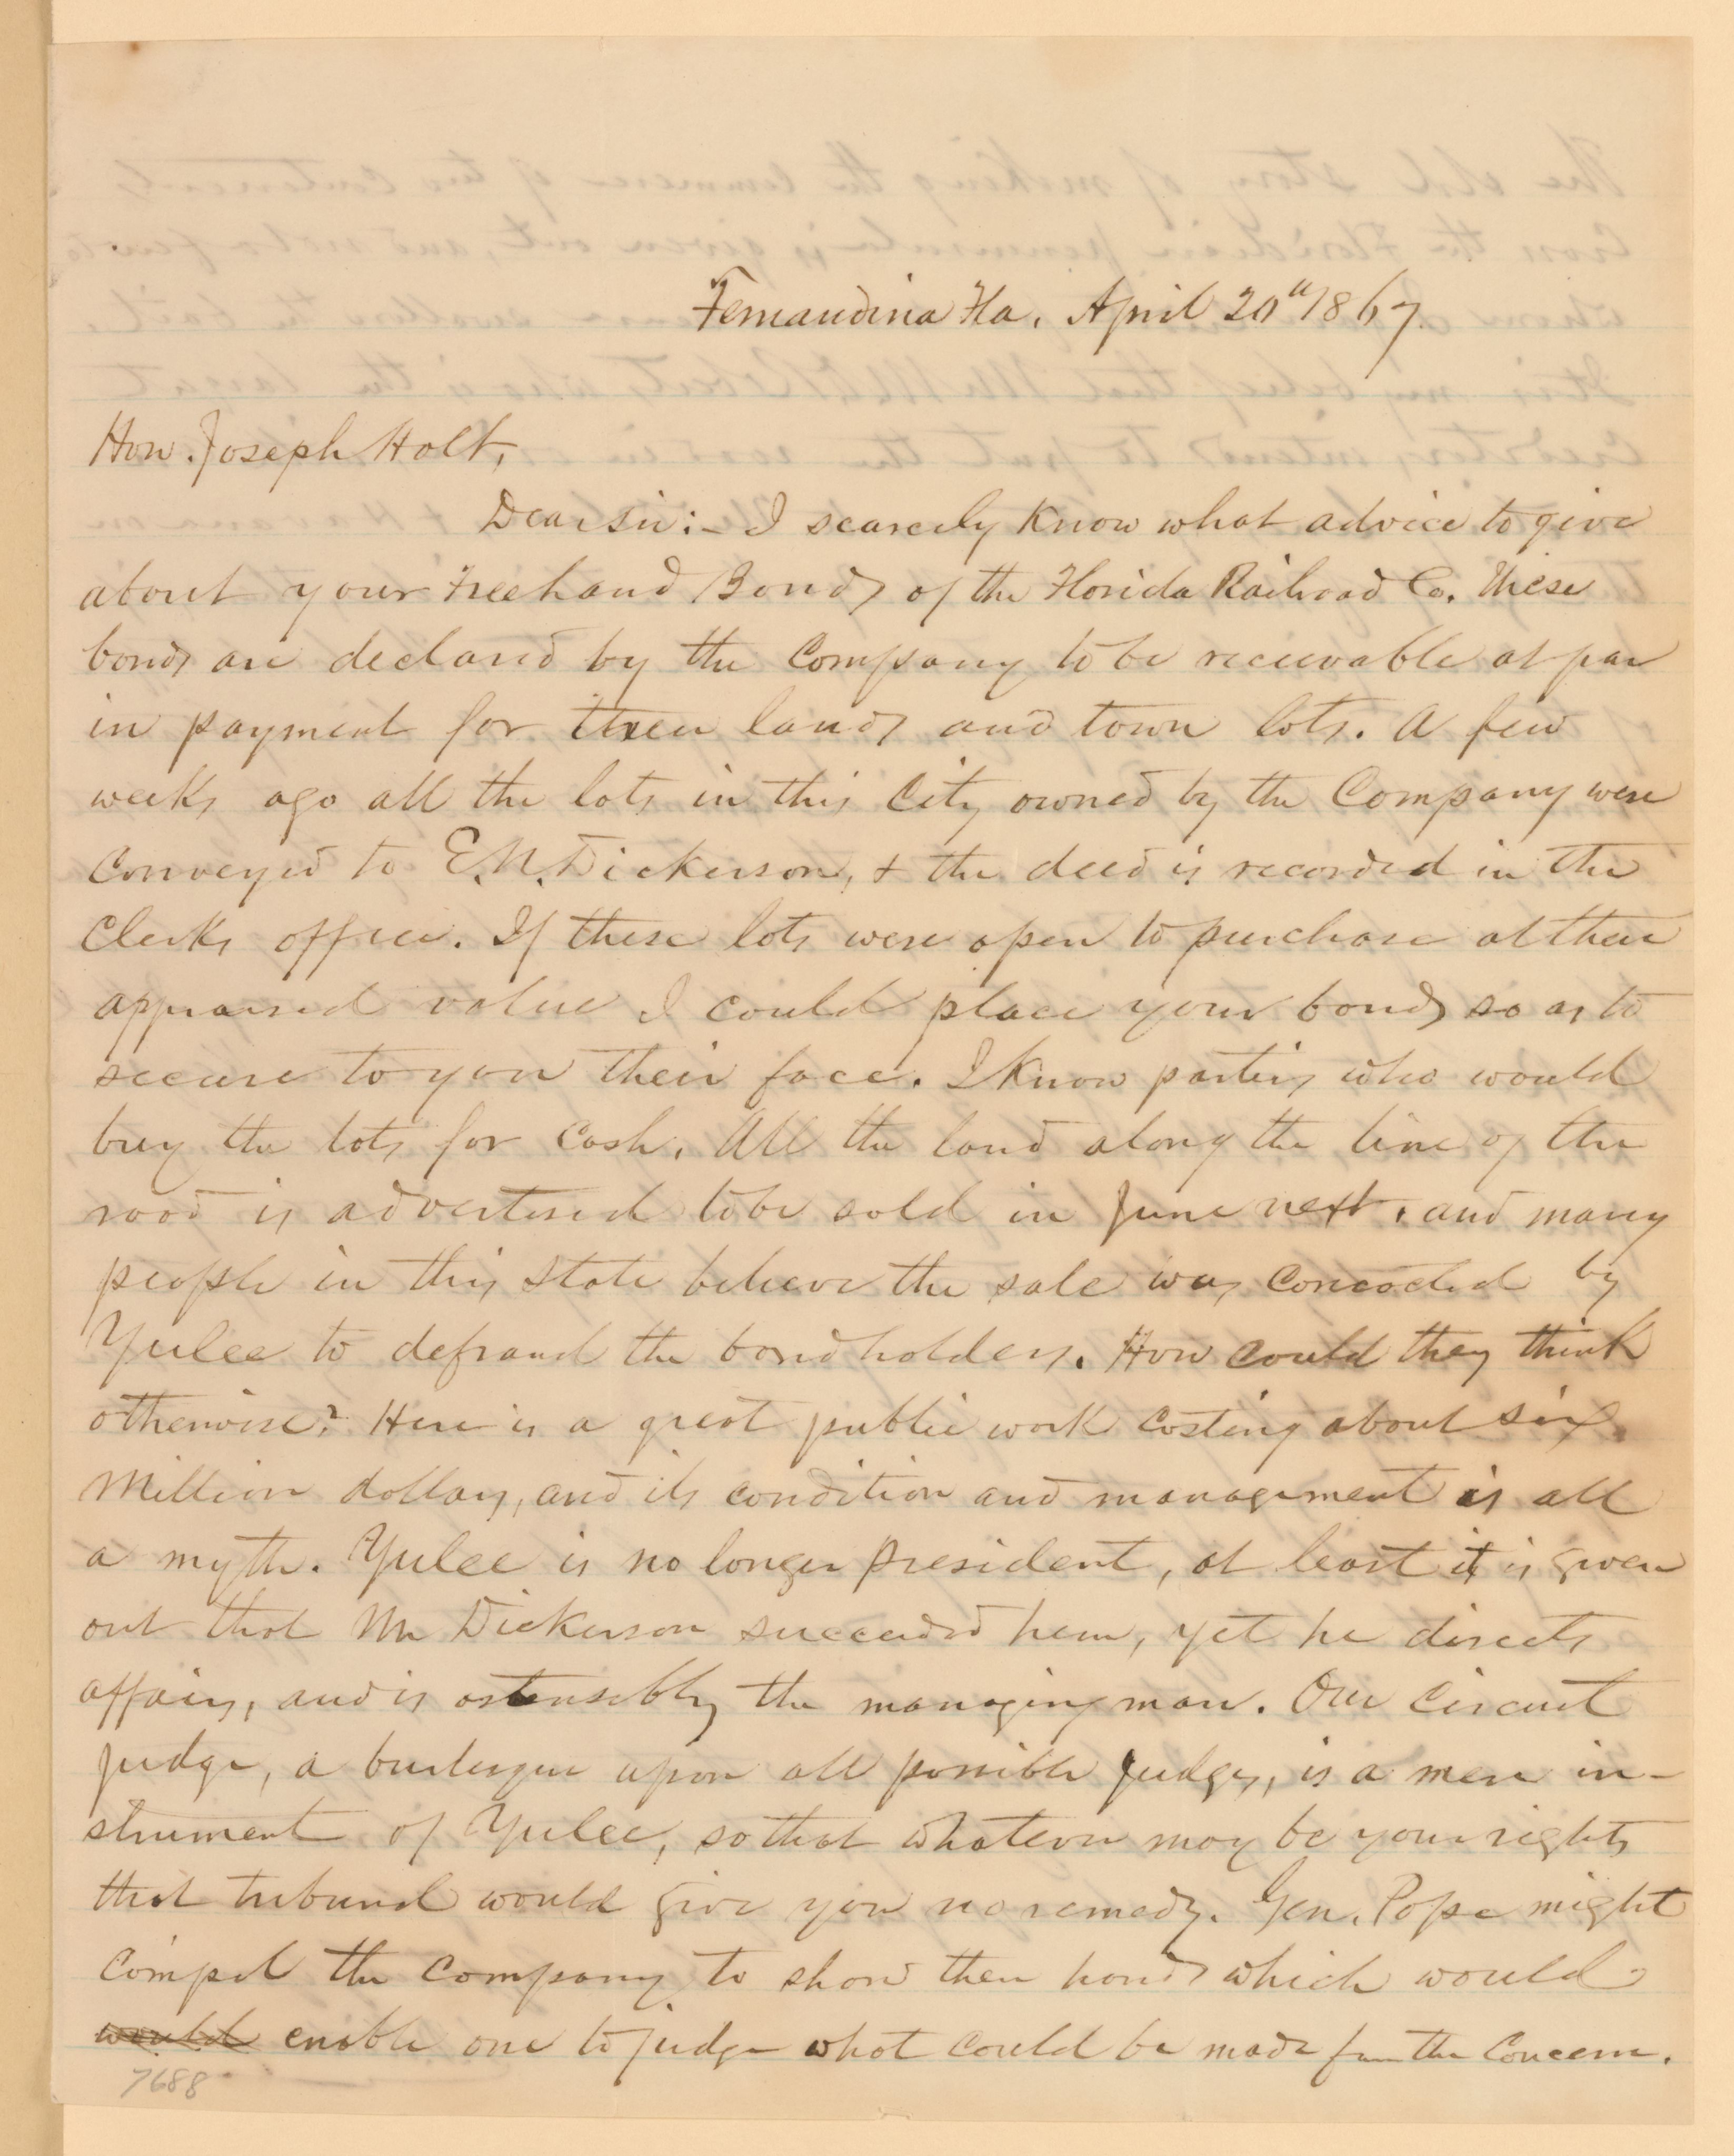 Fernandina Fla. April 20th 1867.
Hon. Joseph Holt,
Dear Sir:- I scarcely know what advice to give
about your Freehand Bonds of the Florida Railroad Co. These
bonds are declared by the Company to be receivable at par
in payment for their lands and town lots. A few
weeks ago all the lots in this City owned by the Company were
conveyed to E.N. Dickerson, & the deed is recorded in the
Clerks office. If these lots were open to purchase at their
appraised value I could place your bonds so as to
secure to you their face. I know parties who would
buy the lots for cash. All the land along the line of the
road is advertised to be sold in June next, and many
people in this State believe the sale was concocted by
Yulee to defraud the bondholders. How could they think
otherwise? Here is a great public work costing about six
million dollars, and its condition and management is all
a myth. Yulee is no longer president, at least it is given
out that Mr Dickerson succeeded him, yet he directs
affairs, and is ostensibly the managing man. Our circuit
judge, a burlesque upon all possible judges, is a mere in-
strument of Yulee, so that whatever may be your rights
that tribunal would give you no remedy. Gen. Pope might
compel the company to show their hands which would
would enable one to judge what could be made from the concern.
7688